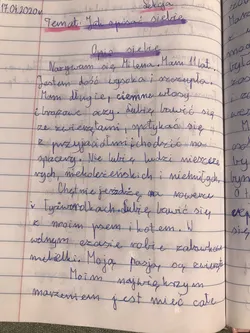 17.04.2020r. Lekcja
Temat: Jak opisać siebie
Opis siebie
Nazywam się Milena. Mam 11 lat.
Jestem dość wysoka i szczupła.
Mam długie, ciemne włosy
i brązowe oczy. Lubię bawić się
ze zwierzętami, spotykać się
z przyjaciółmi i chodzić na
spacery. Nie lubię ludzi nieszcze
rych, niekoleżeńskich i niemiłych.
Chętnie jeżdżę na rowerze
i łyżworolkach. Lubię bawić się
z moim psem i kotem. W
wolnym czasie robię
Moją pasją są zwierzęta
Moim największym
marzeniem jest mieć całe